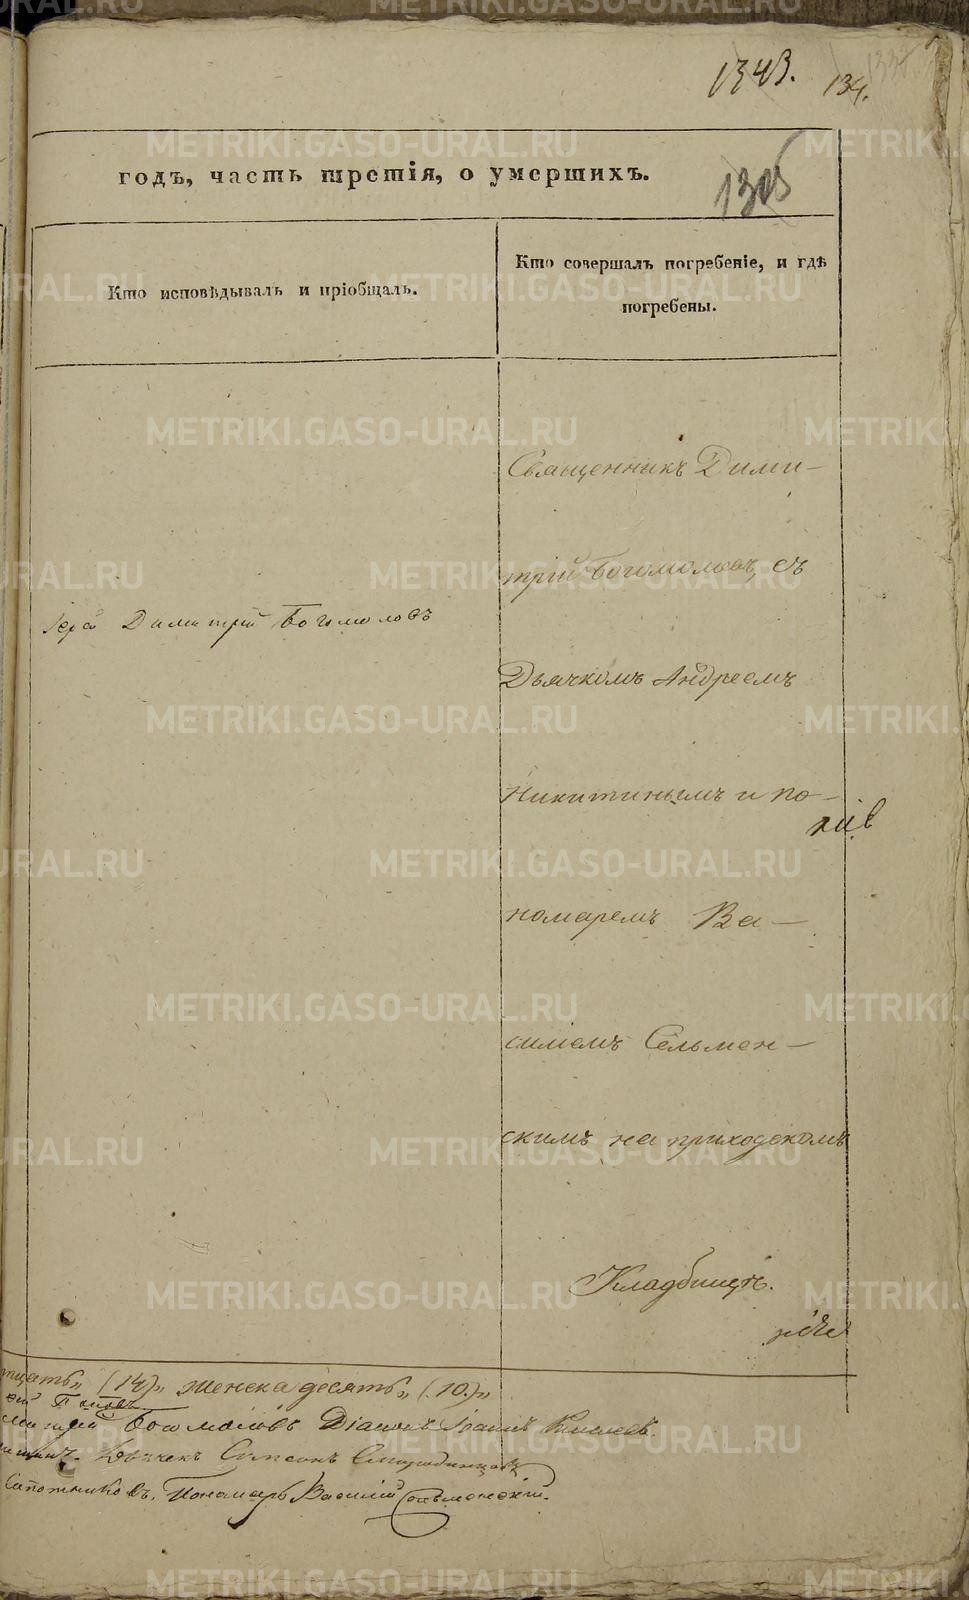 1343. 134.
годъ, часть третія, о умершихъ.
Кто исповѣдывалъ и пріобщалъ.
Кто совершалъ погребеніе, и гдѣ
погребены.
Священникъ Дими-
трій Богомоловъ, съ
Іерей Димитрій Богомоловъ
Дьячкомъ Андреемъ
Никитинымъ и по-
номаремъ Ва-
силіемъ Сельмен-
скимъ на приходскомъ
Кладбищѣ.
(14)„ женска десять„ (10.)„
Поповъ
Богомоловъ Діаконъ Іоаннъ
Дьячекъ Симеонъ
Сапожниковъ. Пономарь Василій Сельменскій.
METRIKI.GASO-URAL.RU